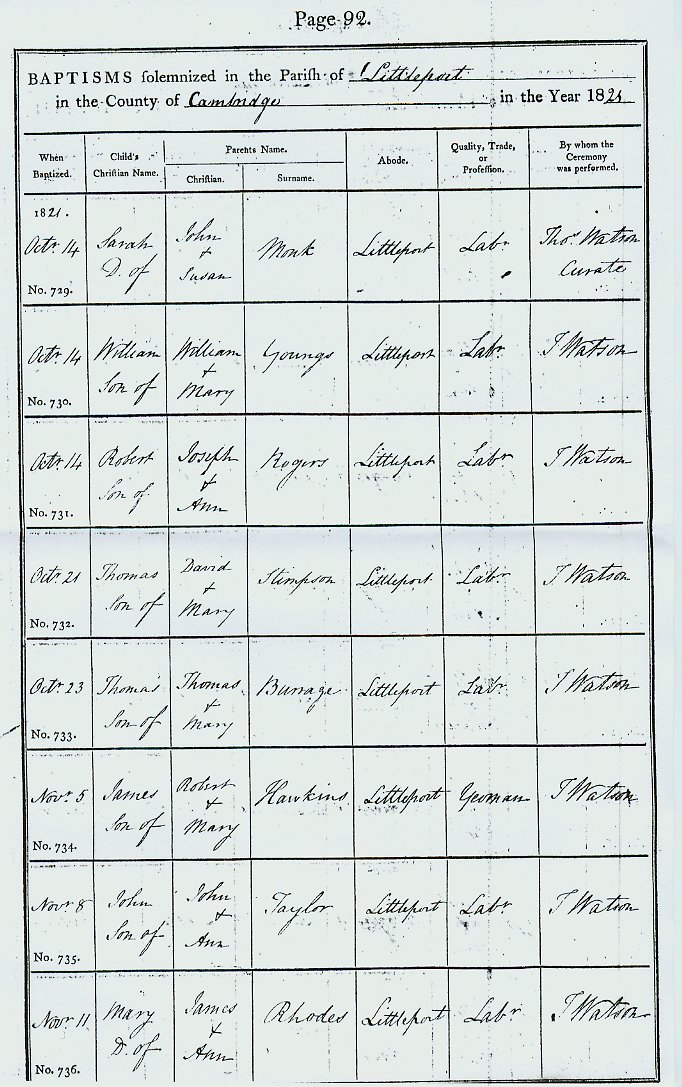 Page 92.
BAPTISMS solemnized in the Parish of Littleport
in the County of Cambridge in the Year 1821
When Baptized. Child's Christian Name. Parents Name. Christian. Surname. Abode. Quality, Trade, or Profession. By whom the Ceremony was performed.
1821.
Octr 14 Sarah John Monk Littleport Labr Thos. Watson
D. of & Susan Curate
No. 729.
Octr 14 William William Youngs Littleport Labr T Watson
Son of & Mary
No. 730.
Octr 14 Robert Joseph Rogers Littleport Labr T Watson
Son of & Ann
No. 731.
Octr 21 Thomas David Stimpson Littleport Labr T Watson
Son of & Mary
No. 732.
Octr 23 Thomas Thomas Burrage Littleport Labr T Watson
Son of & Mary
No. 733.
Novr 5 James Robert Hawkins Littleport Yeoman T Watson
Son of & Mary
No. 734.
Novr 8 John John Taylor Littleport Labr T Watson
Son of & Ann
No. 735.
Novr 11 Mary James Rhodes Littleport Labr T Watson
D. of & Ann
No. 736.